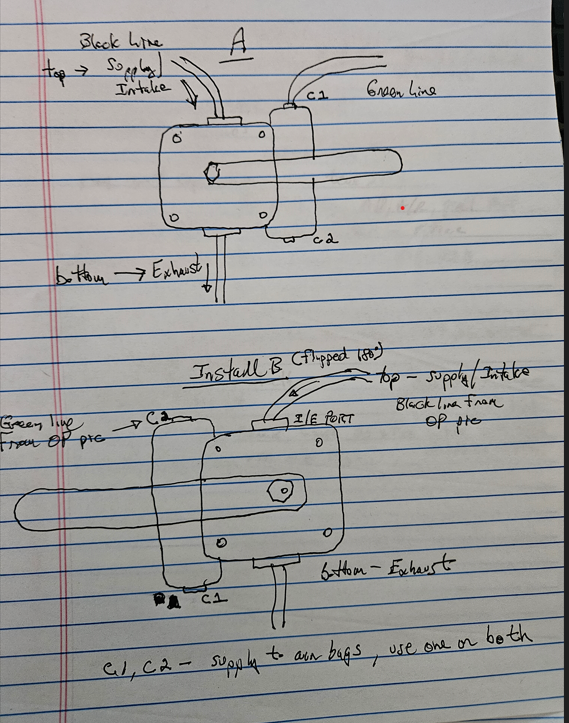 A
Black Line
top → Supply/
Intake
C1
Green line
C2
bottom → Exhaust
Install B (flipped 180°)
top - supply/Intake
Black line from
OP pic
Green line
From OP pic →
C2
I/E PORT
bottom - Exhaust
C1
C1, C2 - supply to air bags, use one or both